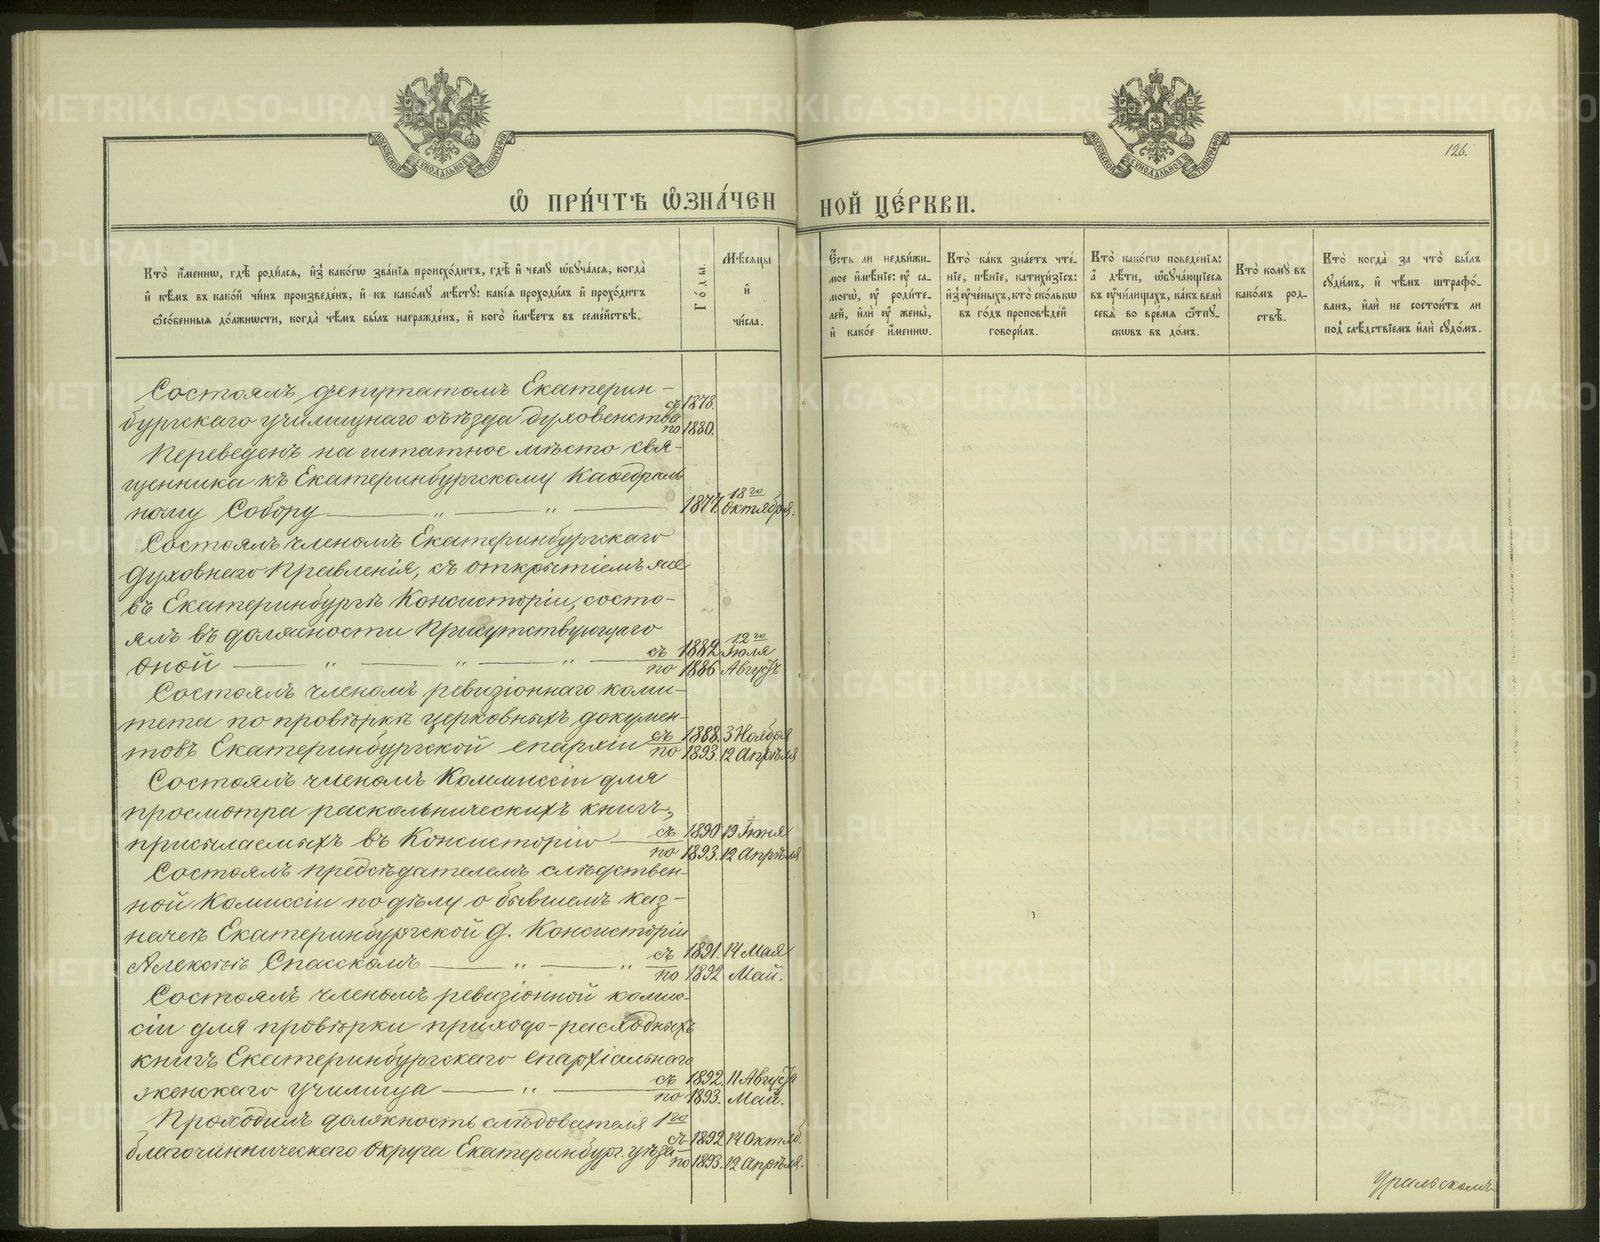 126.
МОСКОВСКОЙ СѴНОДАЛЬНОЙ ТИПОГРАФІИ
МОСКОВСКОЙ СѴНОДАЛЬНОЙ ТИПОГРАФІИ
Ѡ ПРИ́ЧТѢ Ѡ҆ЗНА́ЧЕННОЙ ЦЕ́РКВИ.
Кто̀ и҆́менни, гдѣ̀ роди́лсѧ, и҆з̾ како́гѡ зва́нїѧ происхо́дитъ, гдѣ̀ и҆ чемꙋ̀ ѡ҆бꙋча́лсѧ, когда̀
и҆ кѣ́мъ въ како́й чи́нъ произведе́нъ, и҆ къ како́мꙋ мѣ́стꙋ: какі̑ѧ проходи́лъ и҆ прохо́дитъ
ѻ҆со́бенныѧ до́лжности, когда̀ чѣ́мъ бы́лъ награжде́нъ, и҆ кого̀ и҆мѣ́етъ въ семе́йствѣ.
Го́ды.
Мѣ́сѧцы
и҆
чи́сла.
Е҆́сть ли недви́жи-
мое и҆мѣ́нїе: ᲂу҆ са-
мого̀, ᲂу҆ роди́те-
лей, и҆лѝ ᲂу҆ жены̀,
и҆ како́е и҆́менно.
Кто̀ ка́къ зна́етъ чте́-
нїе, пѣ́нїе, катихи́зїсъ:
и҆з̾ ᲂу҆че́ныхъ, кто̀ ско́лькѡ
въ го́дъ про́повѣдей
говори́лъ.
Кто̀ како́гѡ поведе́нїѧ:
а҆ дѣ́ти, ѡ҆бꙋча́ющїесѧ
въ ᲂу҆чи́лищахъ, ка́къ велѝ
себѧ̀ во вре́мѧ ѿпꙋ-
сковъ въ до́мъ.
Кто̀ комꙋ̀ въ
како́мъ род-
ствѣ̀.
Кто̀ когда̀ за что̀ бы́лъ
сꙋди́мъ, и҆ чѣ́мъ штрафо́-
ванъ, и҆лѝ не состои́тъ ли
под̾ слѣ́дствїемъ и҆лѝ сꙋдо́мъ.
Состоялъ депутатомъ Екатерин-
бургскаго училищнаго съѣзда духовенства съ 1878.
по 1880.
Переведенъ на штатное мѣсто свя-
щенника къ Екатеринбургскому Каѳедраль
ному Собору — „ — „ — 1877. 18го Октября.
Состоялъ членомъ Екатеринбургскаго
Духовнаго Правленія, съ открытіемъ же
въ Екатеринбургѣ Консисторіи, состо-
ялъ въ должности Присутствующаго
оной — „ — „ — „ — съ 1882 12го Іюля
по 1886 Августъ
Состоялъ членомъ ревизіоннаго коми-
тета по провѣркѣ церковныхъ докумен-
товъ Екатеринбургской епархіи съ 1888. 3 Ноября
по 1893. 12 Апрѣля
Состоялъ членомъ Коммиссіи для
просмотра раскольническихъ книгъ,
присылаемыхъ въ Консисторію — съ 1890 19 Іюня
по 1893. 12 Апрѣля
Состоялъ предсѣдателемъ слѣдствен-
ной Комиссіи по дѣлу о бывшемъ каз-
начеѣ Екатеринбургской Д. Консисторіи
Алексѣѣ Спасскомъ — „ — „ — съ 1891. 14 Мая
по 1892 Май.
Состоялъ членомъ ревизіонной комис-
сіи для провѣрки приходо-расходныхъ
книгъ Екатеринбургскаго епархіальнаго
женскаго училища — „ — съ 1892. 11 Августа
по 1893. Май.
Проходилъ должность слѣдователя 1го
благочинническаго округа Екатеринбург. уѣзда съ 1892 14 Октяб.
по 1893. 12 Апрѣля.
Уральскомъ